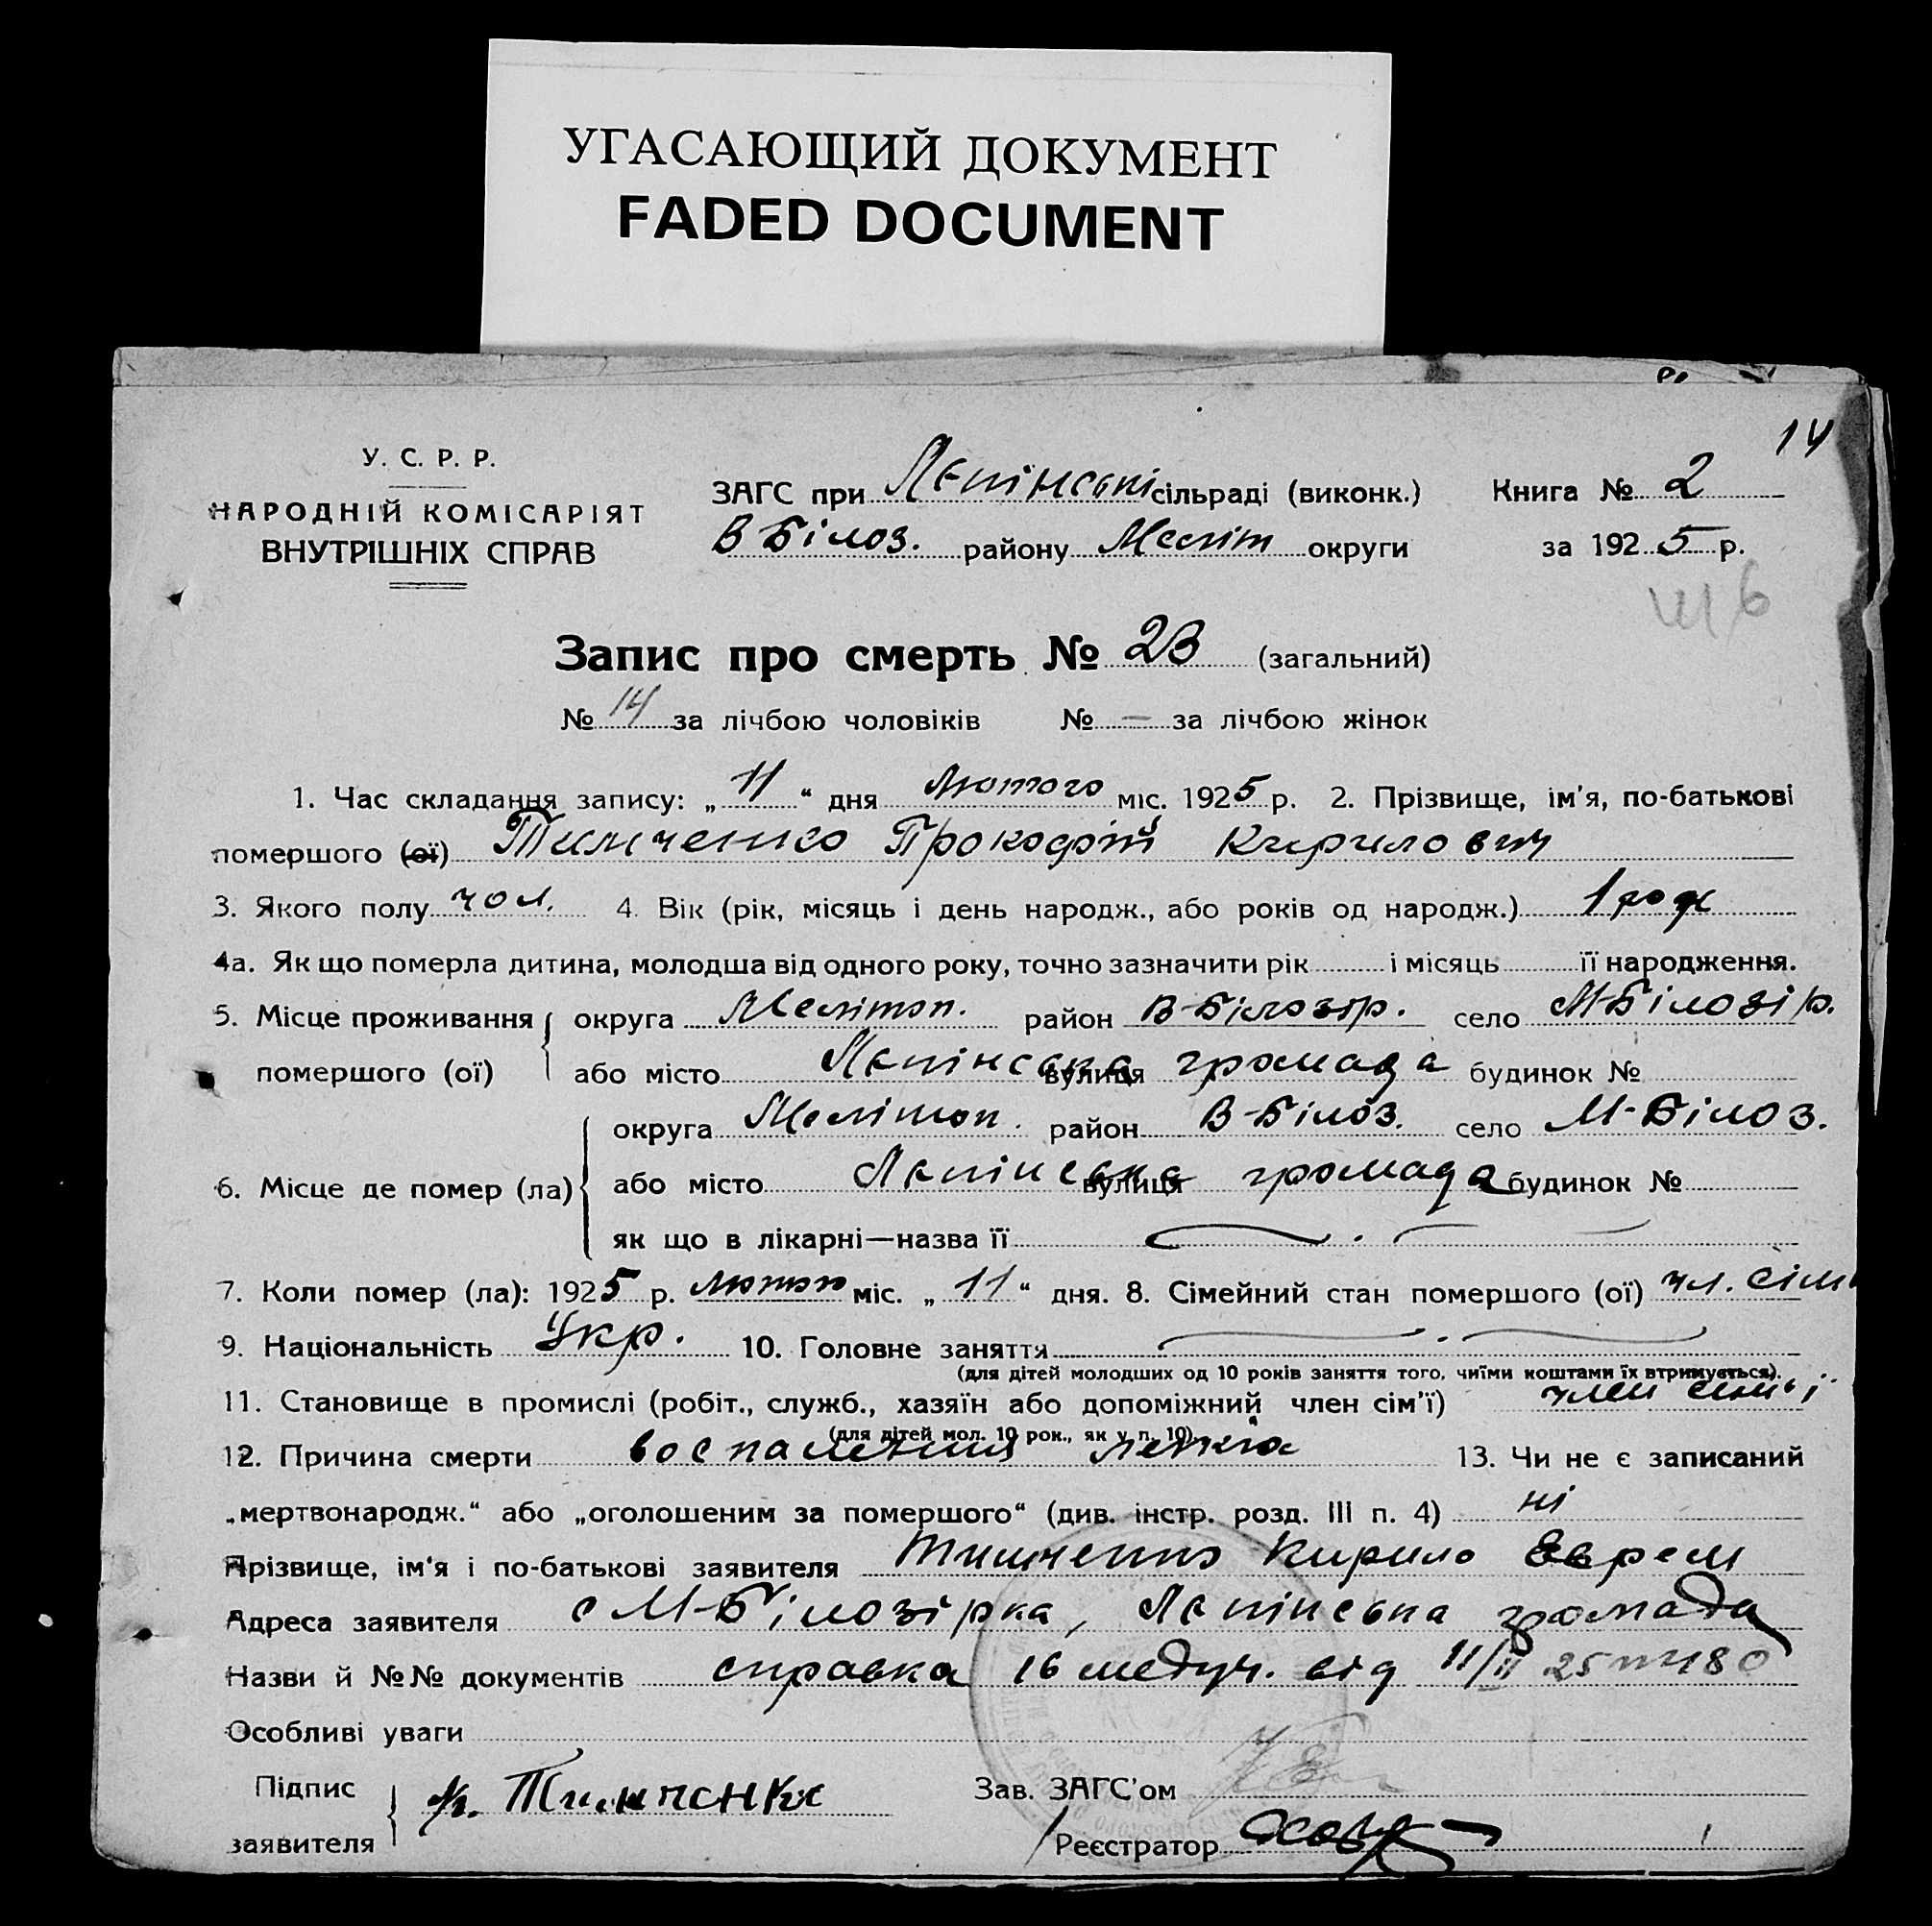 УГАСАЮЩИЙ ДОКУМЕНТ
FADED DOCUMENT
14
У. С. Р. Р.
НАРОДНІЙ КОМІСАРІЯТ
ВНУТРІШНІХ СПРАВ
ЗАГС при Лєпінські сільраді (виконк.) Книга № 2
В Білоз. району Меліт округи за 1925 р.
Запис про смерть № 23 (загальний)
№ 14 за лічбою чоловіків № — за лічбою жінок
1. Час складання запису: „11“ дня Лютого міс. 1925 р. 2. Прізвище, ім'я, по-батькові
помершого (ої) Тимченко Кирилович
3. Якого полу чол. 4. Вік (рік, місяць і день народж., або років од народж.) 1 рок
4а. Як що померла дитина, молодша від одного року, точно зазначити рік і місяць її народження.
5. Місце проживання округа Мелітоп. район В-Білозір. село М-Білозір.
помершого (ої) або місто Лєпінська вулиця громада будинок №
округа Мелітоп. район В-Білоз. село М-Білоз.
6. Місце де помер (ла) або місто Лєпінська вулиця громада будинок №
як що в лікарні—назва її
7. Коли помер (ла): 1925 р. лютого міс. „11“ дня. 8. Сімейний стан помершого (ої) чл. сім
9. Національність Укр. 10. Головне заняття
(для дітей молодших од 10 років заняття того, чиїми коштами їх втримується).
11. Становище в промислі (робіт., служб., хазяїн або допоміжний член сім'ї) член сімьї
(для дітей мол. 10 рок., як у п. 10)
12. Причина смерти воспаления легких 13. Чи не є записаний
„мертвонародж.“ або „оголошеним за помершого“ (див. інстр. розд. III п. 4) ні
Прізвище, ім'я і по-батькові заявителя Тимченко Кирило Еврем
Адреса заявителя с М-Білозірка, Лєпінська громада
Назви й №№ документів справка 16 медуч. від 11/II 25 № 180
Особливі уваги
Підпис заявителя к. Тимченко
Зав. ЗАГС'ом
Реєстратор